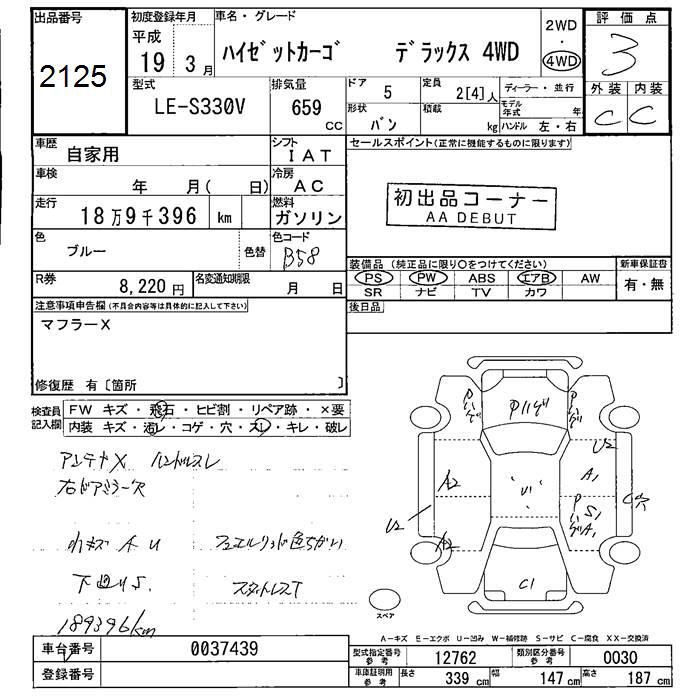 出品番号
2125
初度登録年月
平成
19 3月
車名・グレード
ハイゼットカーゴ デラックス 4WD
2WD
・
4WD
評価点
3
外装 内装
C C
型式
LE-S330V
排気量
659
CC
ドア
5
定員
2[4]人
ディーラー・並行
モデル年式 年
形状
バン
積載
kg
ハンドル 左・右
車歴
自家用
シフト
IAT
車検
年 月( 日)
冷房
AC
走行
18万9千396 km
燃料
ガソリン
色
ブルー
色替
色コード
B58
R券
8,220円
名変通知期限
月 日
セールスポイント(正常に機能するものに限ります)
初出品コーナー
AA DEBUT
装備品 (純正品に限り○をつけてください)
新車保証書
PS PW ABS エアB AW
SR ナビ TV カワ
有・無
後日品
注意事項申告欄(不具合内容等は具体的に記入して下さい)
マフラーX
修復歴 有〔箇所 〕
検査員
記入欄
FW キズ・飛石・ヒビ割・リペア跡・×要
内装 キズ・汚レ・コゲ・穴・スレ・キレ・破レ
アンテナX ハンドルスレ
右ドアミラーX
小キズ A U フュエルリッド色ちがい
下廻りS. スタットレスT
189396km
Pハゲ
Pハゲ
Pハゲ
U2
A2
A1
U1
Pハゲ
S1
A1
C穴
U2
A2
C1
スペア
A-キズ E-エクボ U-凹み W-補修跡 S-サビ C-腐食 XX-交換済
車台番号
0037439
登録番号
型式指定番号
参考
12762
類別区分番号
参考
0030
車庫証明用
参考
長さ
339 cm
幅
147 cm
高さ
187 cm